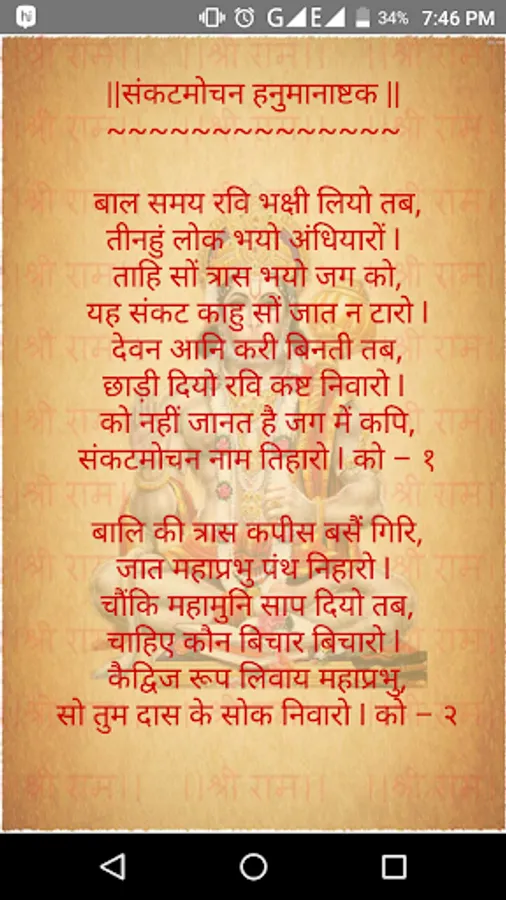 34% 7:46 PM
||संकटमोचन हनुमानाष्टक ||
~~~~~~~~~~~~~~
बाल समय रवि भक्षी लियो तब,
तीनहुं लोक भयो अंधियारों l
ताहि सों त्रास भयो जग को,
यह संकट काहु सों जात न टारो l
देवन आनि करी बिनती तब,
छाड़ी दियो रवि कष्ट निवारो l
को नहीं जानत है जग में कपि,
संकटमोचन नाम तिहारो l को – १
बालि की त्रास कपीस बसैं गिरि,
जात महाप्रभु पंथ निहारो l
चौंकि महामुनि साप दियो तब,
चाहिए कौन बिचार बिचारो l
कैद्विज रूप लिवाय महाप्रभु,
सो तुम दास के सोक निवारो l को – २
||श्री राम|| ||श्री राम||